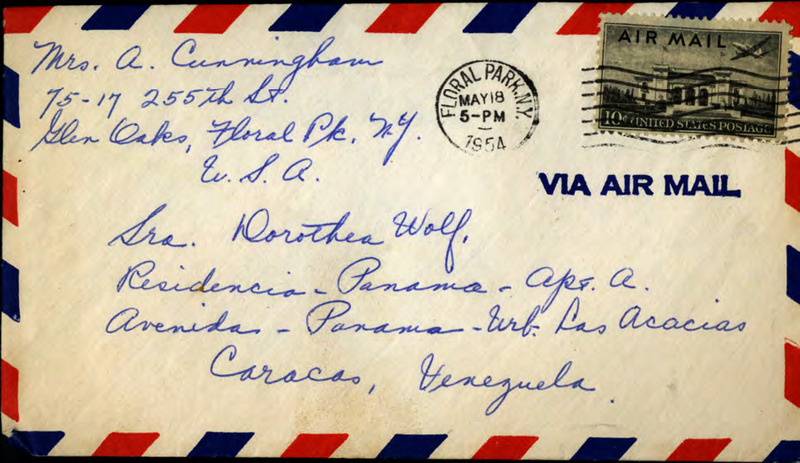 Mrs. A. Cunningham
75-17 255th St.
Glen Oaks, Floral Pk, N.Y.
U. S. A.
FLORAL PARK, N.Y.
MAY 18
5-PM
1954
AIR MAIL
10¢ UNITED STATES POSTAGE
VIA AIR MAIL
Sra. Dorothea Wolf,
Residencia - Panama - Apt. A.
Avenida - Panama - Urb. Las Acacias
Caracas, Venezuela